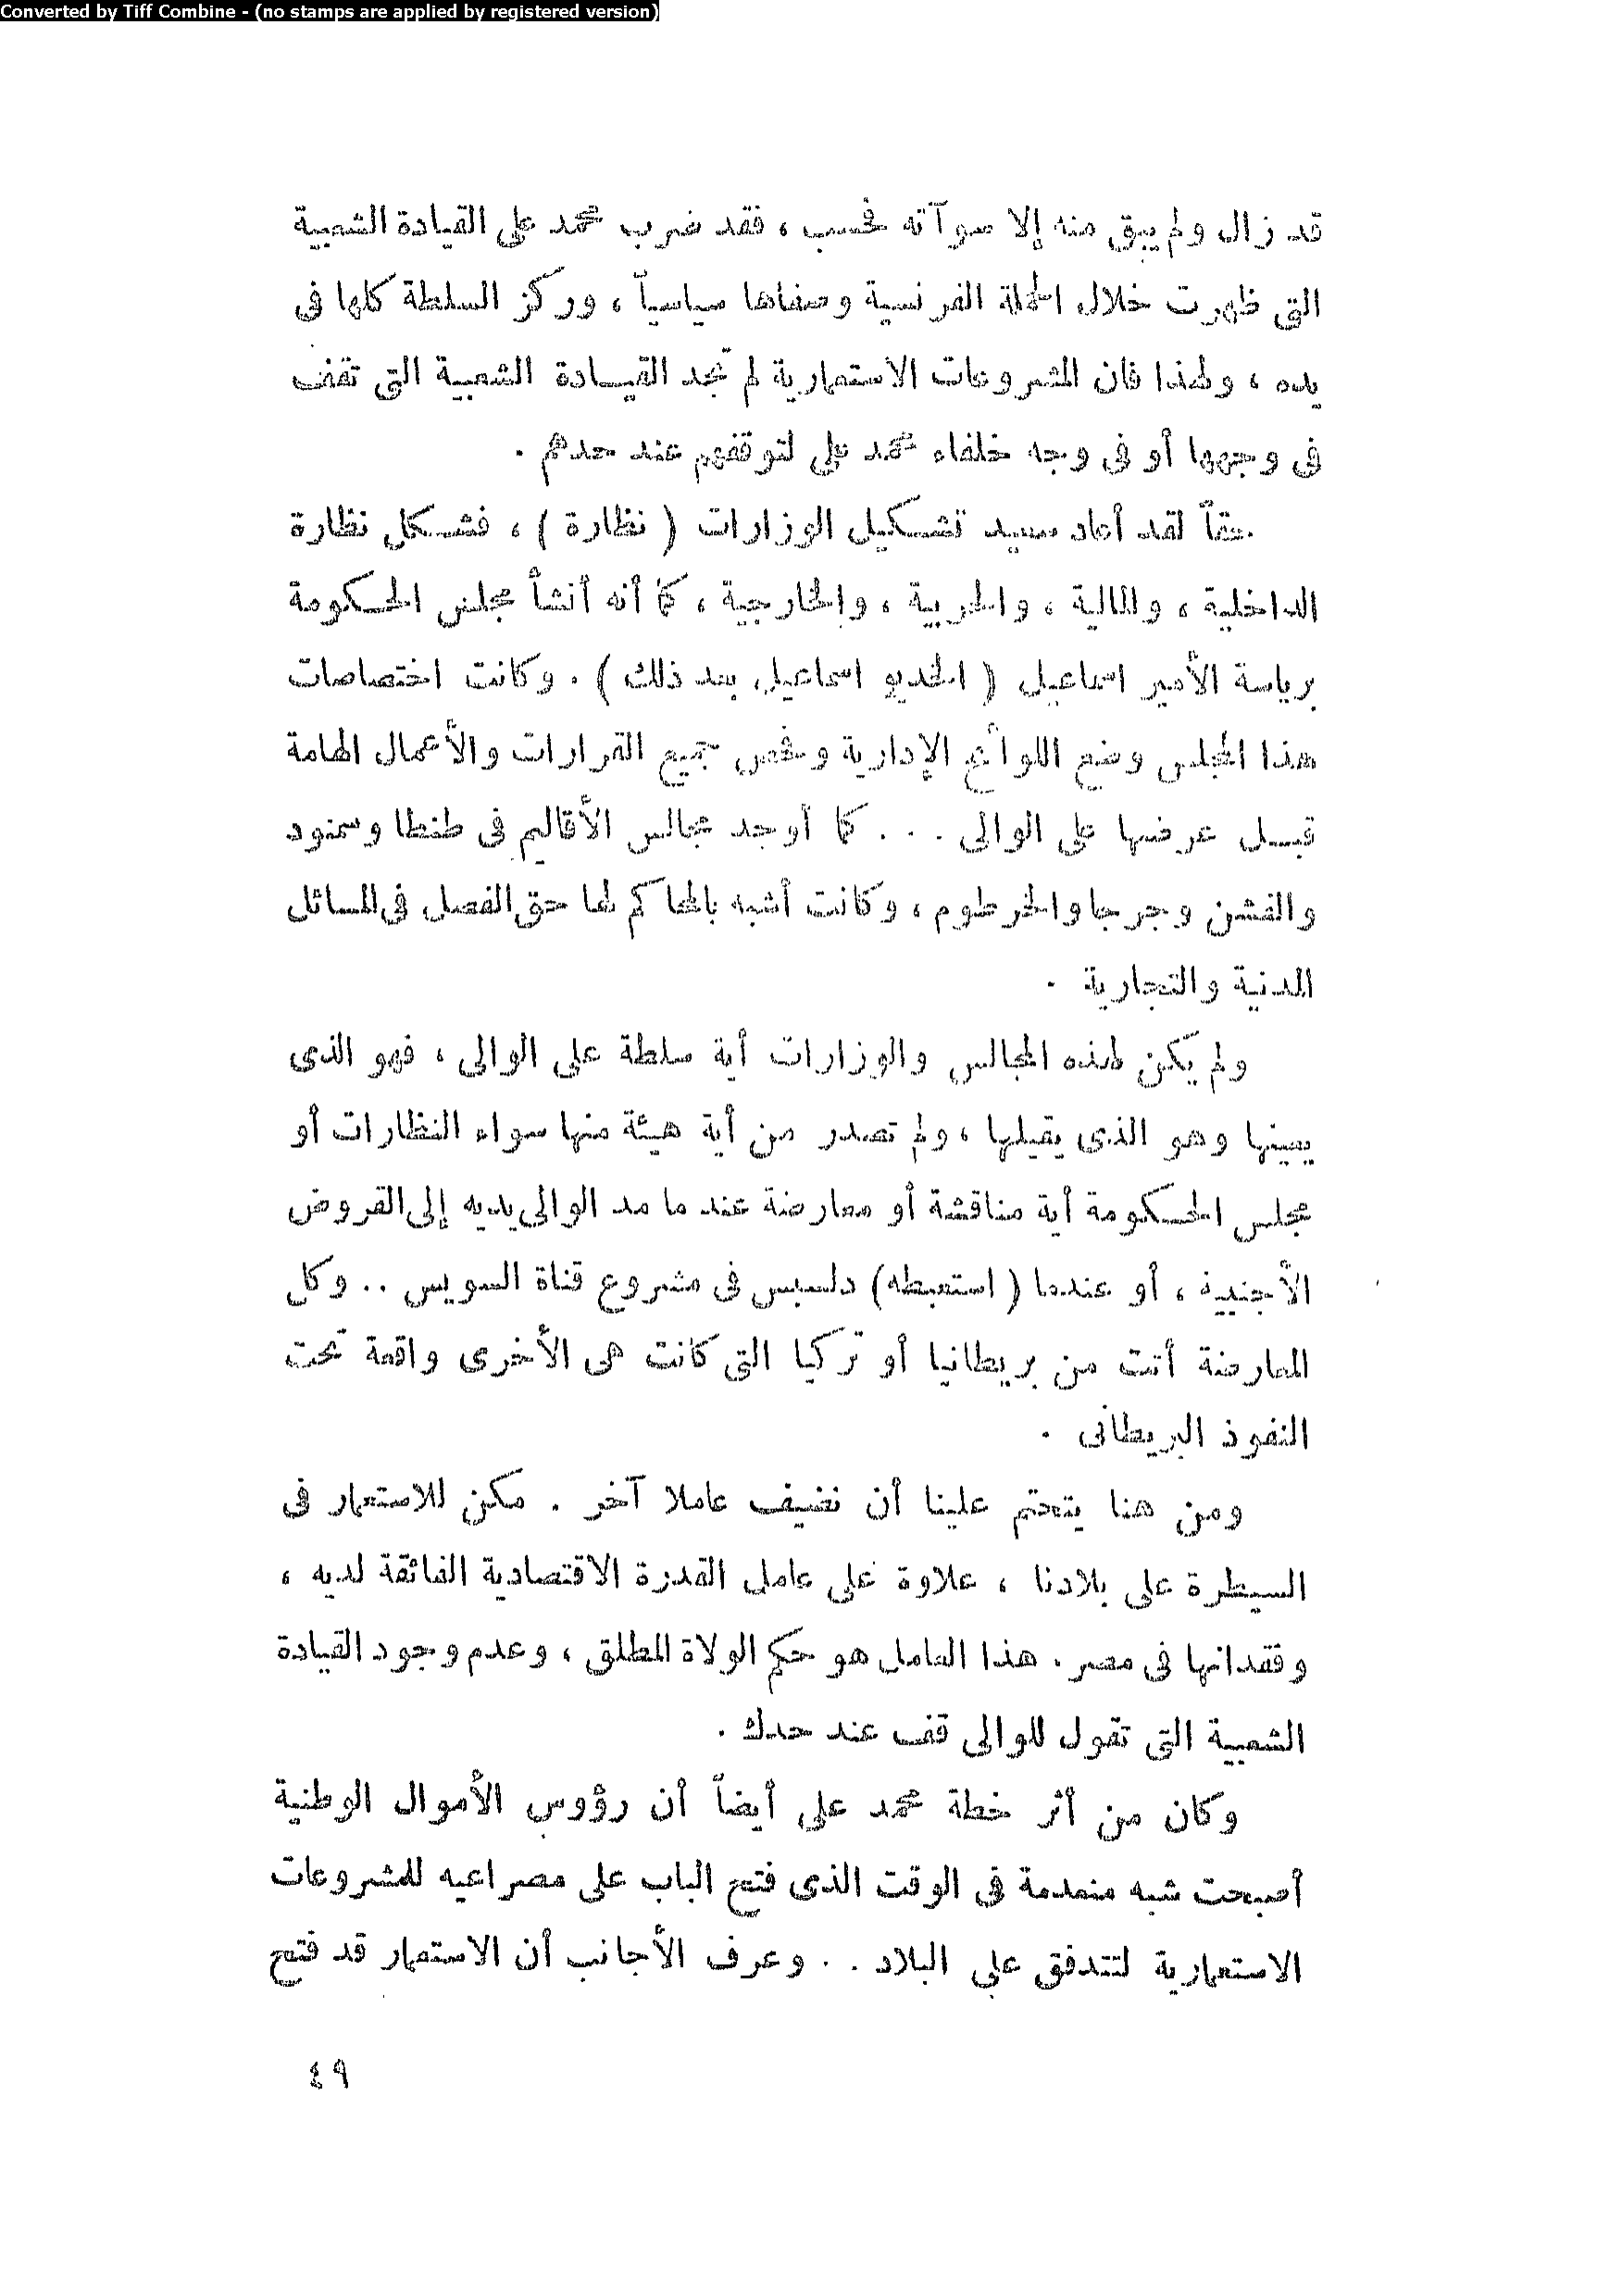 Converted by Tiff Combine - (no stamps are applied by registered version)
قد زال ولم يبق منه إلا سوآته فحسب ، فقد ضرب محمد على القيادة الشعبية
التى ظهرت خلال الحملة الفرنسية وصفاها سياسياً ، وركز السلطة كلها فى
يده ، ولهذا فان المشروعات الاستعمارية لم تجد القيـادة الشعبية التى تقف
فى وجهها أو فى وجه خلفاء محمد على لتوقفهم عند حدهم .
حقاً لقد أعاد سعيد تشكيل الوزارات ( نظارة ) ، فشكل نظارة
الداخلية ، والمالية ، والحربية ، والخارجية ، كما أنه أنشأ مجلس الحكومة
برياسة الأمير اسماعيل ( الخديو اسماعيل بعد ذلك ) . وكانت اختصاصات
هذا المجلس وضع اللوائح الإدارية وفحص جميع القرارات والأعمال الهامة
قبـل عرضها على الوالى . . . كما أوجد مجالس الأقاليم فى طنطا وسمنود
والفشن وجرجا والخرطوم ، وكانت أشبه بالمحاكم لها حق الفصل فى المسائل
المدنية والتجارية .
ولم يكن لهذه المجالس والوزارات أية سلطة على الوالى ، فهو الذى
يعينها وهو الذى يقيلها ، ولم تصدر من أية هيئة منها سواء النظارات أو
مجلس الحكومة أية مناقشة أو معارضة عند ما مد الوالى يديه إلى القروض
الأجنبية ، أو عندما ( استعبطه ) دلسبس فى مشروع قناة السويس .. وكل
المعارضة أتت من بريطانيا أو تركيا التى كانت هى الأخرى واقعة تحت
النفوذ البريطانى .
ومن هنا يتحتم علينا أن نضيف عاملا آخر . مكن للاستعمار فى
السيطرة على بلادنا ، علاوة على عامل القدرة الاقتصادية الفائقة لديه ،
وفقدانها فى مصر . هذا العامل هو حكم الولاة المطلق ، وعدم وجود القيادة
الشعبية التى تقول للوالى قف عند حدك .
وكان من أثر خطة محمد على أيضاً أن رؤوس الأموال الوطنية
أصبحت شبه منعدمة فى الوقت الذى فتح الباب على مصراعيه للمشروعات
الاستعمارية لتتدفق على البلاد . . وعرف الأجانب أن الاستعمار قد فتح
٤٩